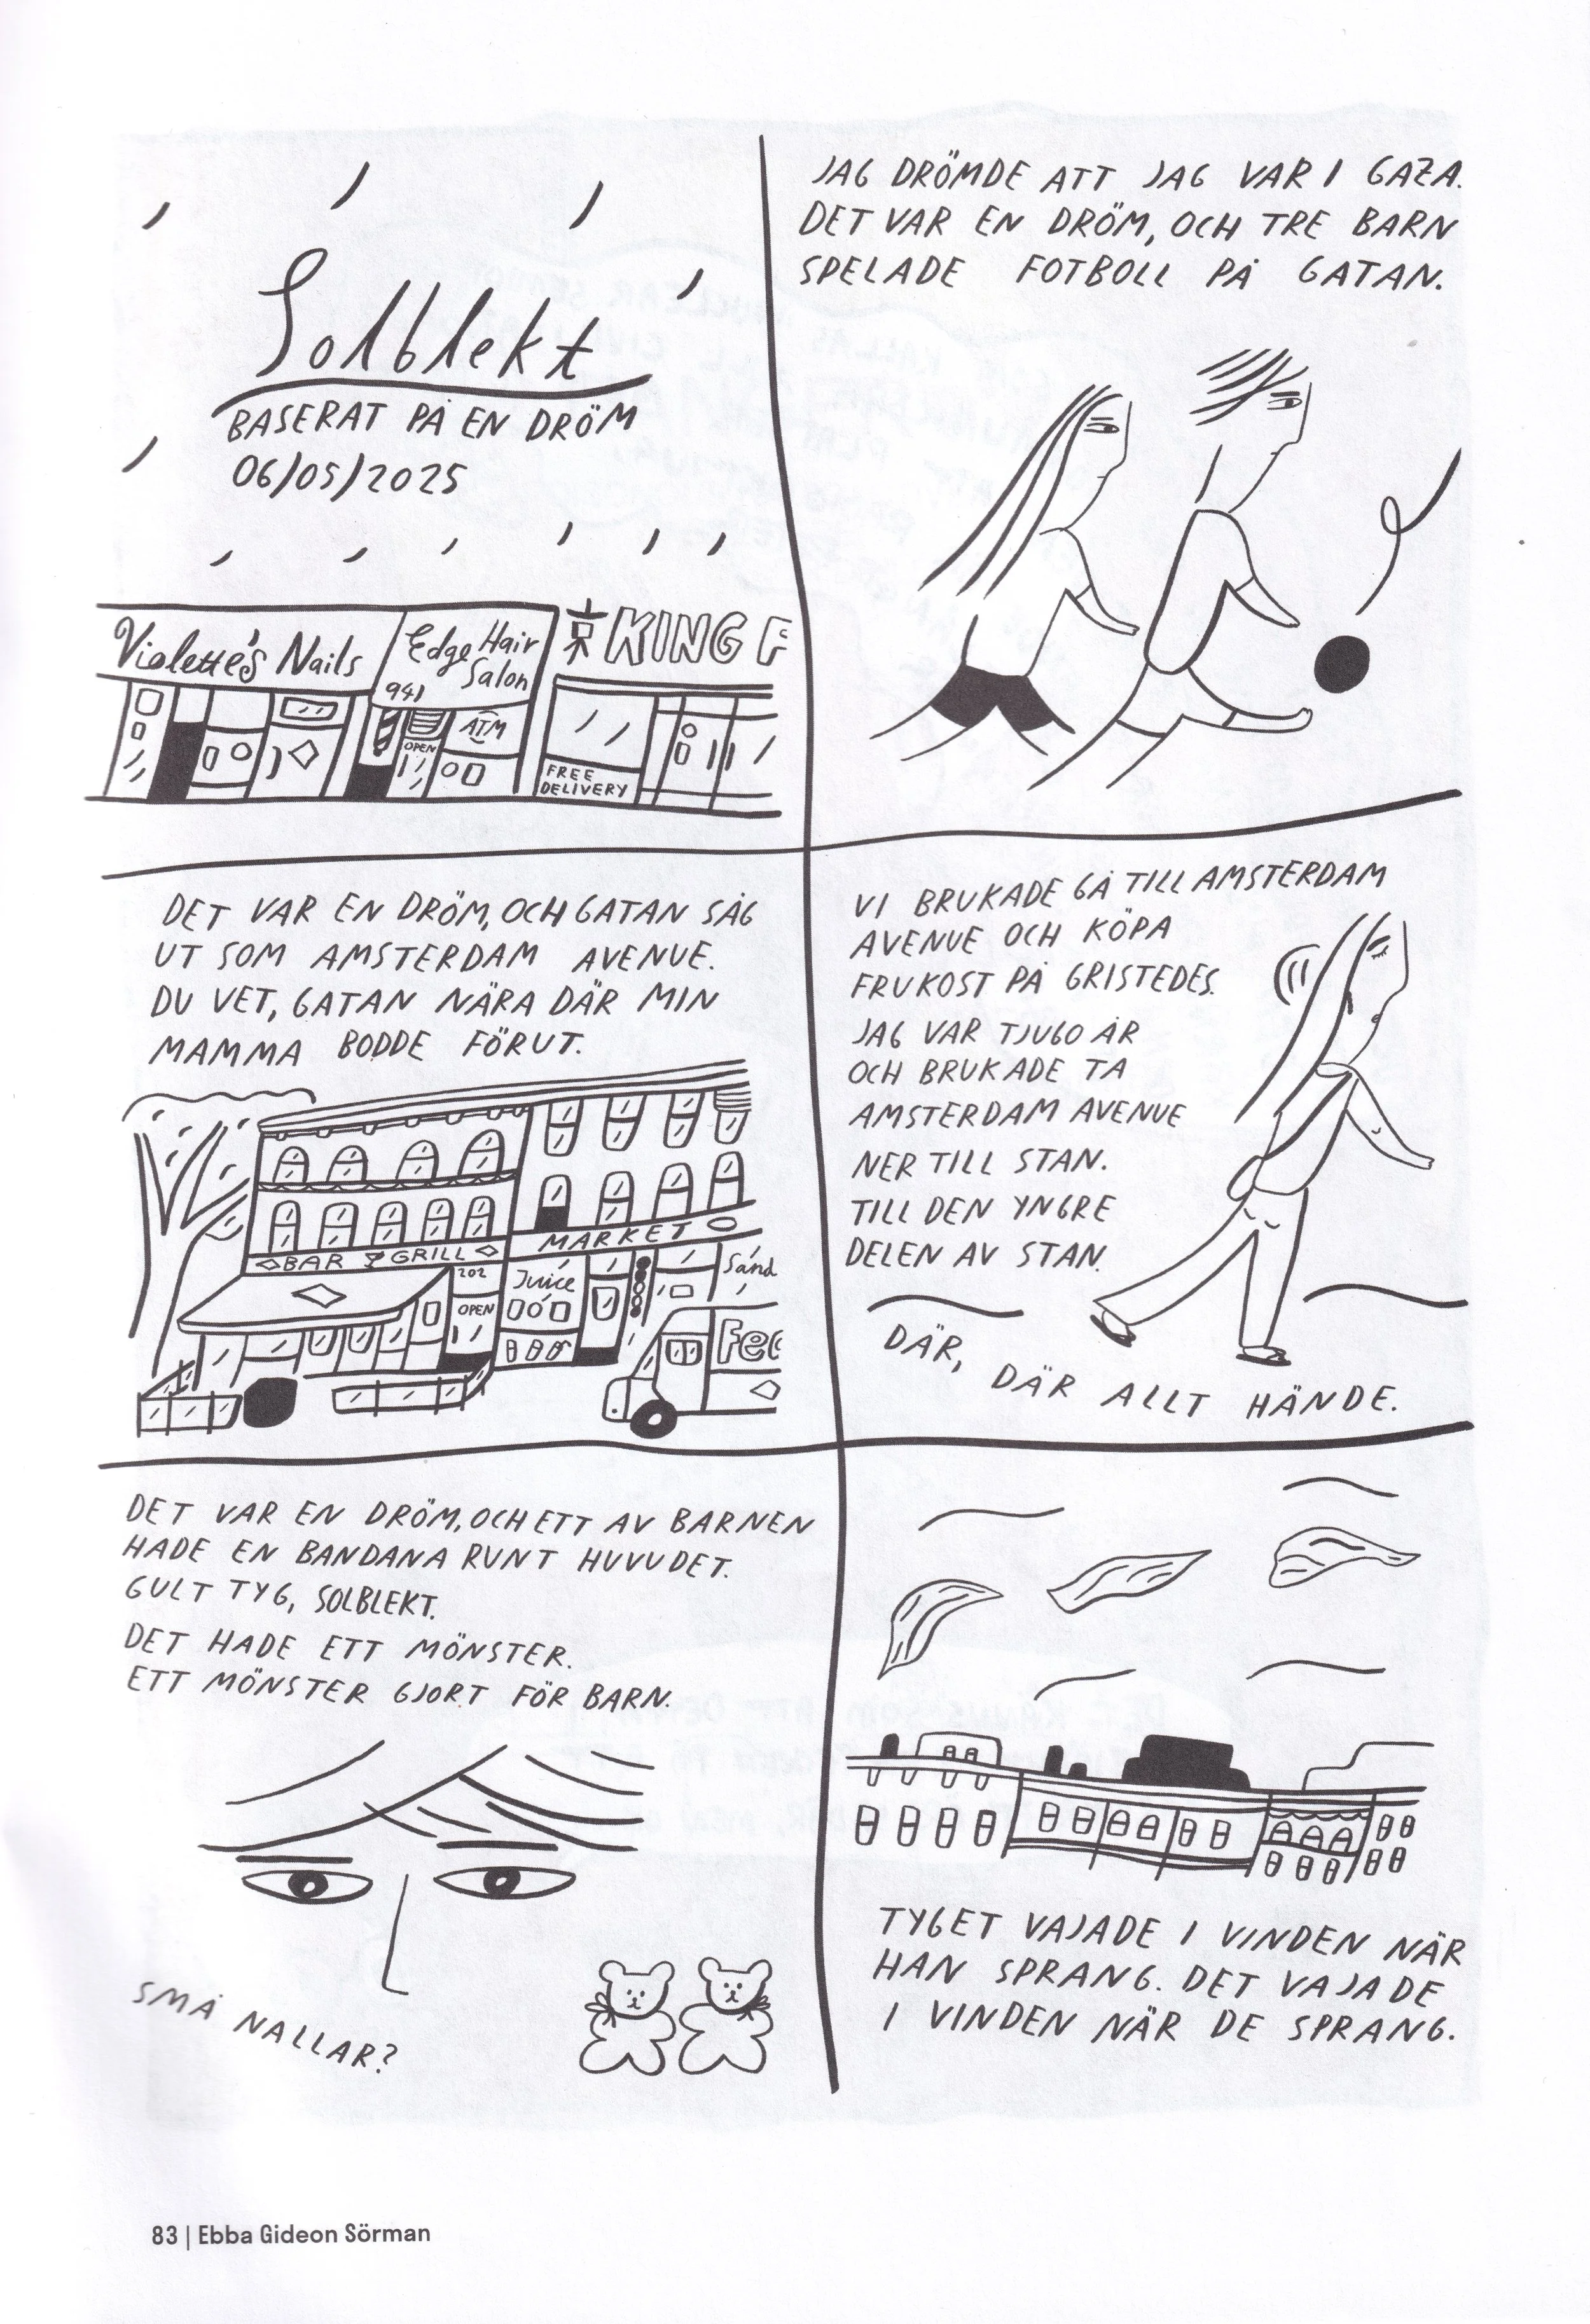 Solblekt
BASERAT PÅ EN DRÖM
06/05/2025
Violette's Nails
Edge Hair
Salon
941
ATM
OPEN
京 KING F
FREE
DELIVERY
JAG DRÖMDE ATT JAG VAR I GAZA.
DET VAR EN DRÖM, OCH TRE BARN
SPELADE FOTBOLL PÅ GATAN.
DET VAR EN DRÖM, OCH GATAN SÅG
UT SOM AMSTERDAM AVENUE.
DU VET, GATAN NÄRA DÄR MIN
MAMMA BODDE FÖRUT.
BAR GRILL
MARKET
202
OPEN
Juice
Sand
Fed
VI BRUKADE GÅ TILL AMSTERDAM
AVENUE OCH KÖPA
FRUKOST PÅ GRISTEDES.
JAG VAR TJUGO ÅR
OCH BRUKADE TA
AMSTERDAM AVENUE
NER TILL STAN.
TILL DEN YNGRE
DELEN AV STAN.
DÄR, DÄR ALLT HÄNDE.
DET VAR EN DRÖM, OCH ETT AV BARNEN
HADE EN BANDANA RUNT HUVUDET.
GULT TYG, SOLBLEKT.
DET HADE ETT MÖNSTER.
ETT MÖNSTER GJORT FÖR BARN.
SMÅ NALLAR?
TYGET VAJADE I VINDEN NÄR
HAN SPRANG. DET VAJADE
I VINDEN NÄR DE SPRANG.
83 | Ebba Gideon Sörman